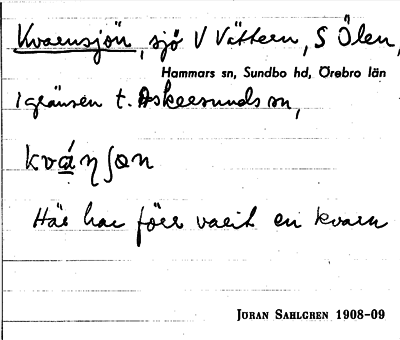 Kvarnsjön, sjö V Vättern, S Ölen,
Hammars sn, Sundbo hd, Örebro län
i gränsen t. Askersunds sn,
kváṇʃøn
Här har förr varit en kvarn
JÖRAN SAHLGREN 1908-09